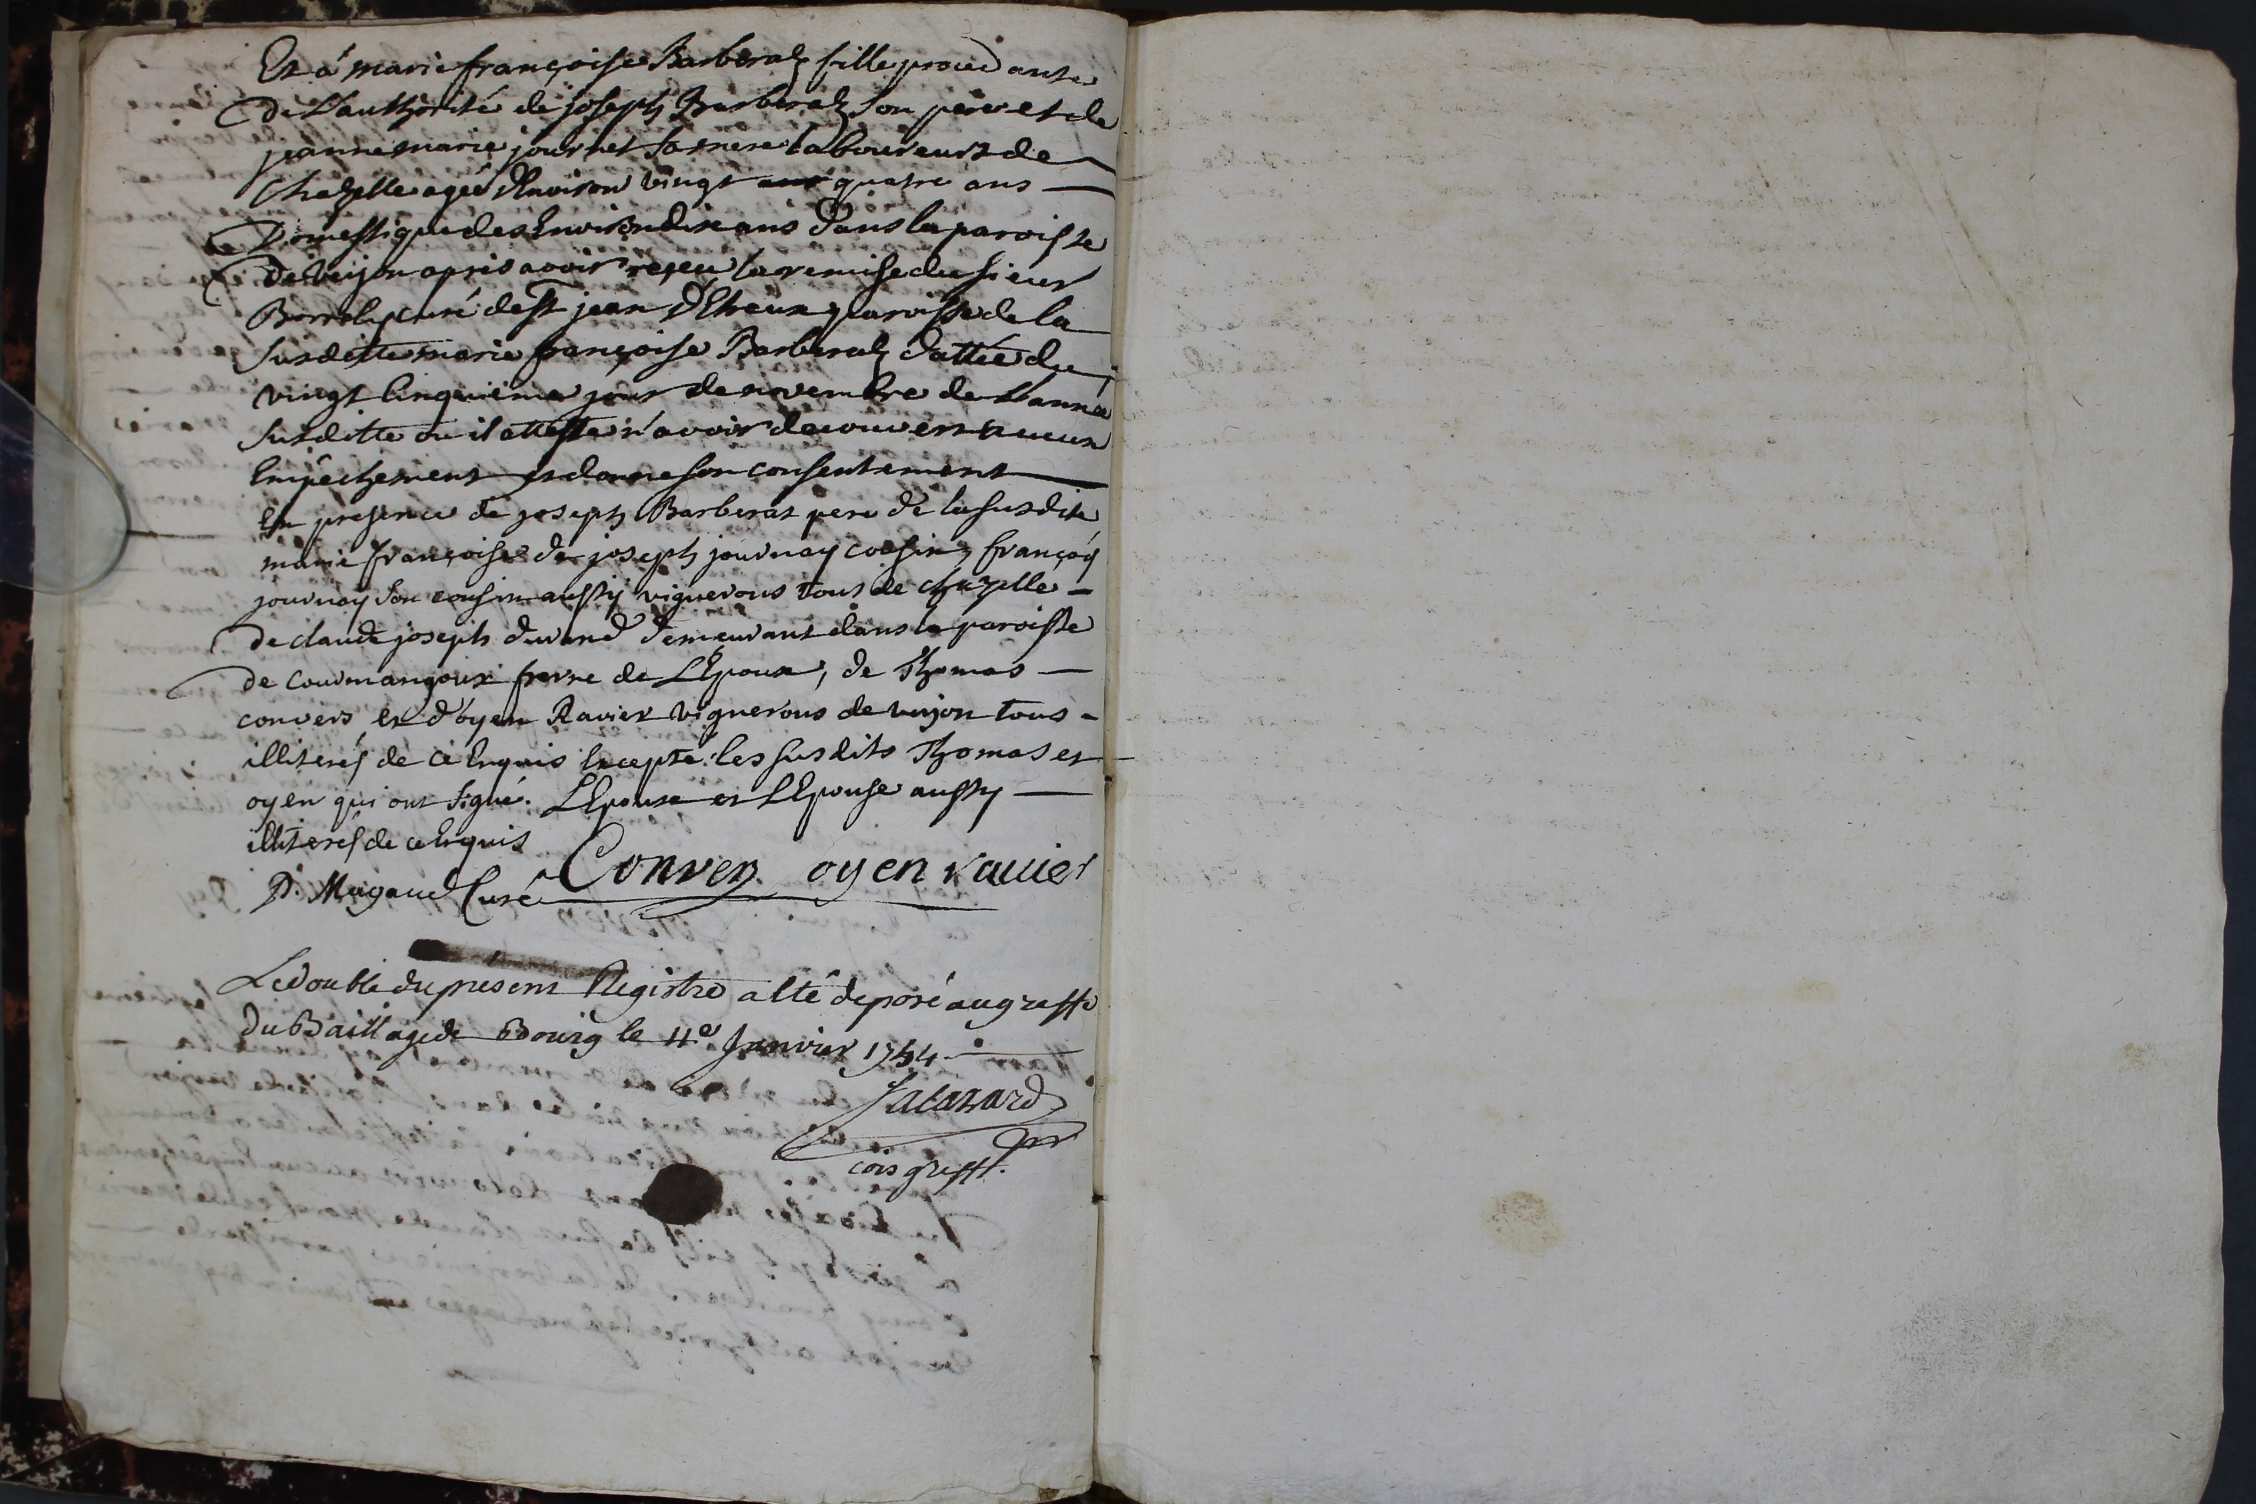 Et á marie françoise Barberat fille procedante
de L'authorité de joseph Barberat son pere et de
jeanne marie journet sa mere laboureurs de
Chazelle agée d'Environ vingt quatre ans
Domestique des Environ dix ans dans la paroisse
de verjon apris avoir reçeu la remise du sieur
curé de St jean d'Etreux paroisse de la
susditte marie françoise Barberat dattée du
vingt Cinquiéme jour de novembre de L'année
susditte ou il atteste n'avoir decouvert aucun
Empêchement et donne son consentement
En presence de joseph Barberat pere de la susdite
marie françoise de joseph journay cousin, françois
journay son cousin aussy vignerons tous de chazelle
de claude joseph durand demeurant dans la paroisse
de courmangoux frere de L'Epoux, de Thomas
convers et d'oyen Ravier vignerons de verjon tous
illiterés de ce Enquis Excepté les susdits Thomas et
oyen qui ont signé. L'Epoux et L'Epouse aussy
illiterés de ce Enquis
D. Mugaud Curé Convers oyen ravier
Le double du présent Registre a Eté deposé au greffe
du Baillage de Bourg le 11e Janvier 1744
cois greff.